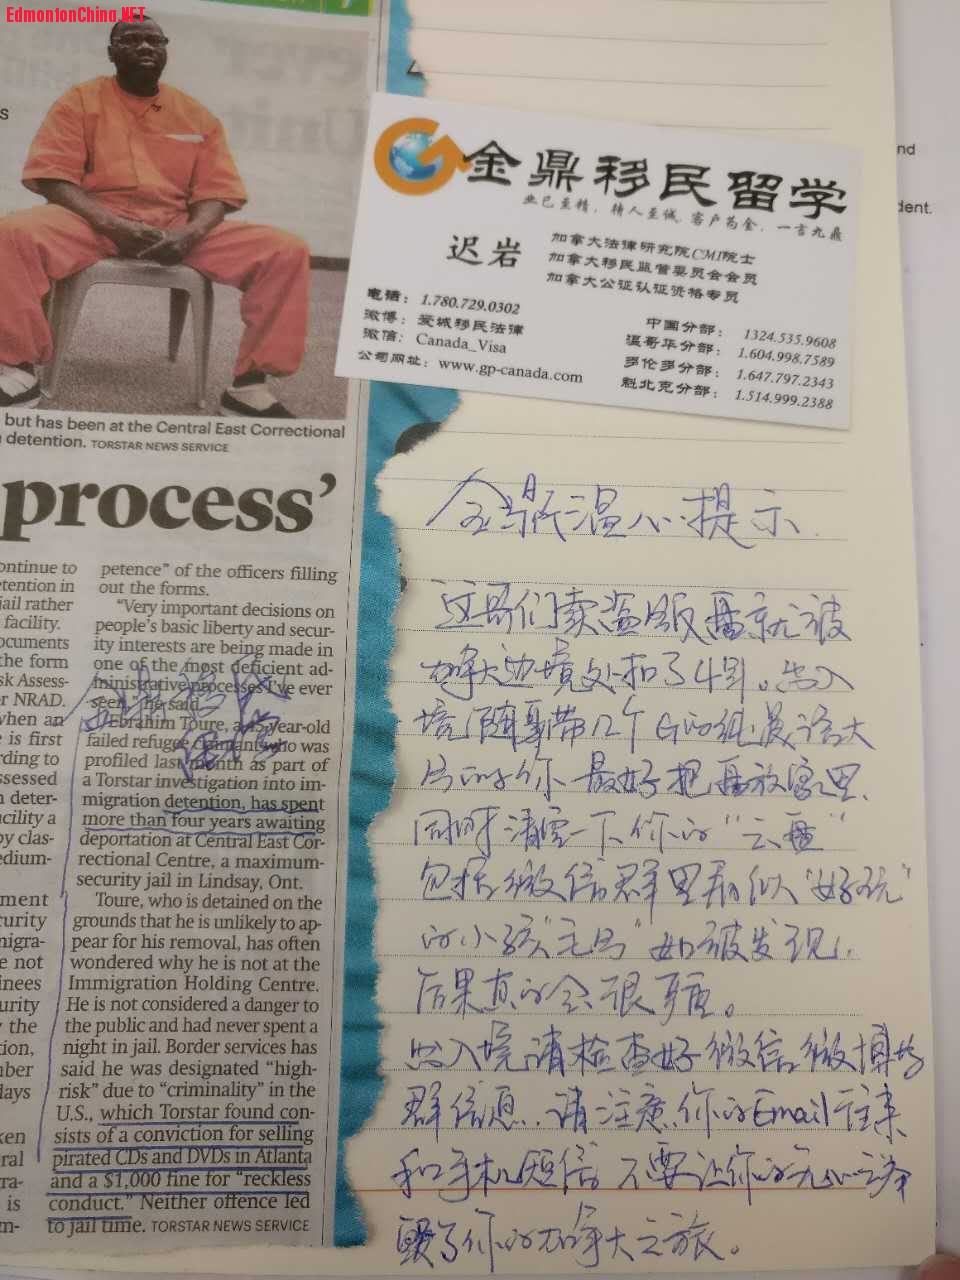 EdmontonChina.NET
nd
dent.
s
金鼎移民留学
业已至精，精人至诚，客户为金，一言九鼎
迟岩
加拿大法律研究院CMI院士
加拿大移民监管委员会会员
加拿大公证认证资格专员
电话： 1.780.729.0302
微博： 爱城移民法律
微信： Canada_Visa
公司网址： www.gp-canada.com
中国分部： 1324.535.9608
温哥华分部： 1.604.998.7589
多伦多分部： 1.647.797.2343
魁北克分部： 1.514.999.2388
but has been at the Central East Correctional
detention. TORSTAR NEWS SERVICE
process’
ontinue to
etention in
jail rather
facility.
ocuments
the form
sk Assess-
r NRAD.
when an
e is first
rding to
ssessed
n deter-
acility a
by clas-
edium-
ment
curity
nigra-
e not
inees
urity
y the
tion,
nber
days
ken
ral
ra-
is
m-
petence” of the officers filling
out the forms.
“Very important decisions on
people’s basic liberty and secur-
ity interests are being made in
one of the most deficient ad-
ministrative processes I’ve ever
seen,” he said.
Ebrahim Toure, a 45-year-old
failed refugee claimant who was
profiled last month as part of
a Torstar investigation into im-
migration detention, has spent
more than four years awaiting
deportation at Central East Cor-
rectional Centre, a maximum-
security jail in Lindsay, Ont.
Toure, who is detained on the
grounds that he is unlikely to ap-
pear for his removal, has often
wondered why he is not at the
Immigration Holding Centre.
He is not considered a danger to
the public and had never spent a
night in jail. Border services has
said he was designated “high-
risk” due to “criminality” in the
U.S., which Torstar found con-
sists of a conviction for selling
pirated CDs and DVDs in Atlanta
and a $1,000 fine for “reckless
conduct.” Neither offence led
to jail time. TORSTAR NEWS SERVICE
金鼎温心提示
这哥们卖盗版盘就被
加拿大边境处扣了4年。出入
境随身带几个G的纯爱诸大
片的你最好把盘放家里.
同时清空一下你的“云盘”
包括微信群里看似“好玩”
的小孩“毛片”如被发现，
后果真的会很严重。
出入境请检查好微信微博与
群信息..请注意你的Email往来
和手机短信 不要让你的无心之举
毁了你的加拿大之旅。